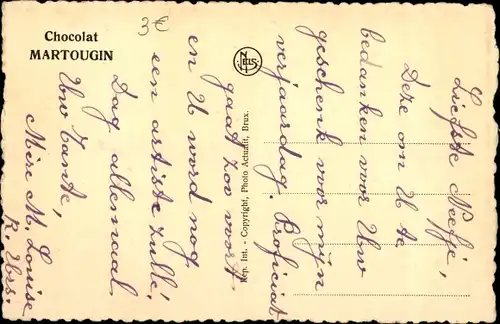 Chocolat
MARTOUGIN
3€
NELS
Rep. Int. - Copyright, Photo Actualit, Brux.
Liefste Neefje,
Deze om U te
bedanken voor Uw
geschenk voor mijn
verjaardag. Proficiat
gaat zoo voort
en U word nog
een artiste zulle!
Dag allemaal
Uw tante,
M. Louise